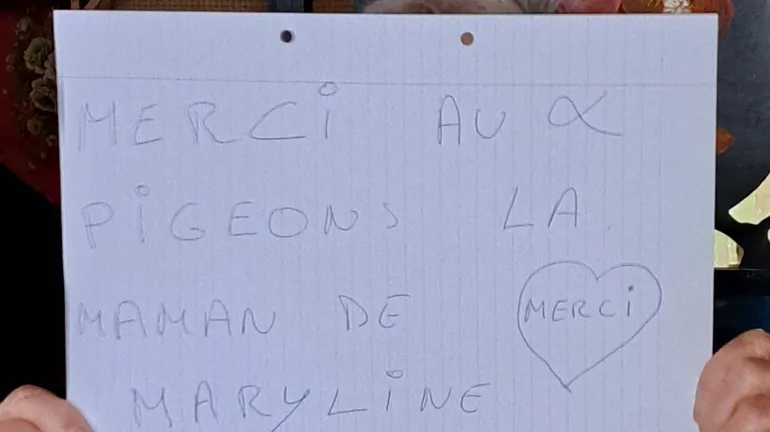 MERCi AU X
PiGEONS LA
MAMAN DE
MERCi
MARYLiNE